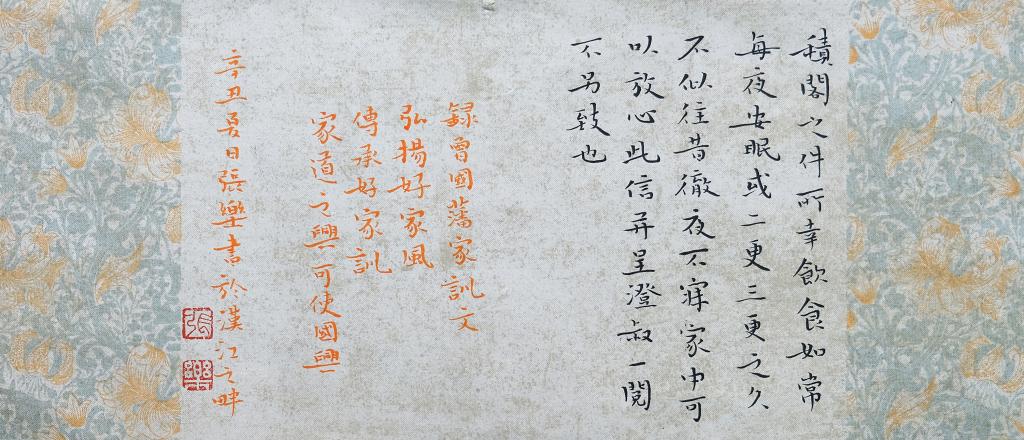 積閣之件所幸飲食如常
每夜安眠或二更三更之久
不似往昔徹夜不寐家中可
以放心此信并呈澄叔一閱
不另致也
録曾國藩家訓文
弘揚好家風
傳承好家訓
家道之興可使國興
辛丑夏日張樂書於漢江之畔
張
樂